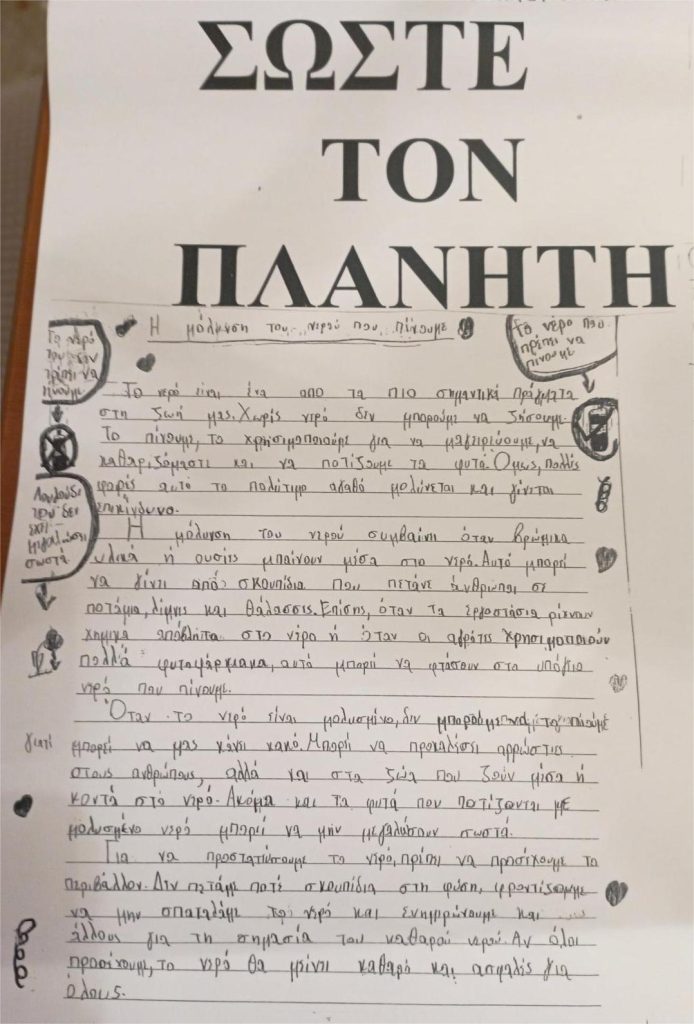 ΣΩΣΤΕ
ΤΟΝ
ΠΛΑΝΗΤΗ
Η μόλυνση του νερού που πίνουμε
Το νερό
που δεν
πρέπει να
πίνουμε
Το νέρο που
πρέπει να
πίνουμε
Το νερό είναι ένα απο τα πιο σημαντικά πράγματα
στη ζωή μας. Χωρίς νερό δεν μπορούμε να ζήσουμε.
Το πίνουμε, το χρησιμοποιούμε για να μαγειρεύουμε, να
καθαριζόμαστε και να ποτίζουμε τα φυτά. Όμως, πολλές
φορές αυτό το πολύτιμο αγαθό μολύνεται και γίνεται
επικίνδυνο.
Λουλούδι
που δεν
έχει
μεγαλώσει
σωστά
Η μόλυνση του νερού συμβαίνει όταν βρώμικα
υλικά ή ουσίες μπαίνουν μέσα στο νερό. Αυτό μπορεί
να γίνει από σκουπίδια που πετάνε άνθρωποι σε
ποτάμια, λίμνες και θάλασσες. Επίσης, όταν τα εργοστάσια ρίχνουν
χημικά απόβλητα στο νέρο ή όταν οι αγρότες χρησιμοποιούν
πολλά φυτοφάρμακα, αυτά μπορεί να φτάσουν στα υπόγεια
νερά που πίνουμε.
Όταν το νερό είναι μολυσμένο, δεν μπορούμε να το πιούμε
γιατί μπορεί να μας κάνει κακό. Μπορεί να προκαλέσει αρρώστιες
στους ανθρώπους, αλλά και στα ζώα που ζούν μέσα ή
κοντά στο νερό. Ακόμα και τα φυτά που ποτίζονται με
μολυσμένο νερό μπορεί να μην μεγαλώσουν σωστά.
Για να προστατεύσουμε το νερό, πρέπει να προσέχουμε το
περιβάλλον. Δεν πετάμε ποτέ σκουπίδια στη φύση, φροντίζουμε
να μην σπαταλάμε το νερό και ενημερώνουμε και
άλλους για τη σημασία του καθαρού νερού. Αν όλοι
προσέχουμε, το νερό θα μείνει καθαρό και ασφαλές για
όλους.